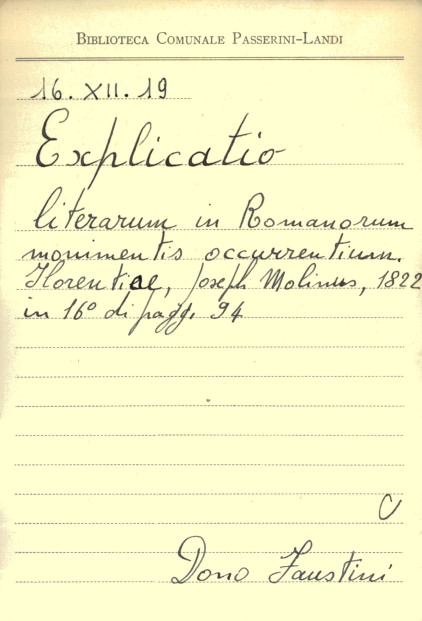 BIBLIOTECA COMUNALE PASSERINI-LANDI
16. XII. 19
Explicatio
literarum in Romanorum
monimentis occurrentium.
Florentiae, Joseph Molinus, 1822
in 16° di pagg. 94
C
Dono Faustini